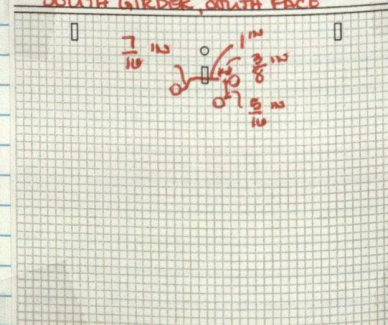 SOUTH GIRDER, SOUTH FACE
7/16 IN
1 IN
3/8 IN
5/16 IN